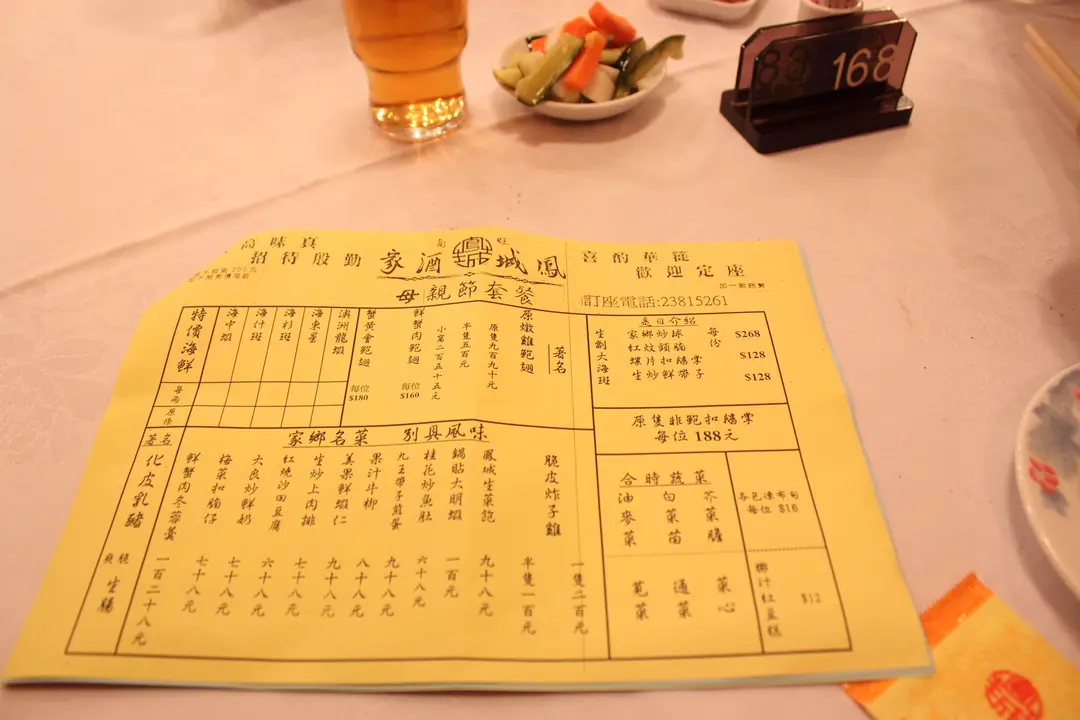 168
招待殷勤
鳳城酒家
歡迎定座
母親節套餐
加一服務費
訂座電話:23815261
著名
原燉雞鮑翅
原隻九百九十元
半隻五百元
小窩二百五十五元
鮮蟹肉鮑翅
每位
$160
蟹黃會鮑翅
每位
$180
澳洲龍蝦
海東星
海杉斑
海什斑
海中蝦
特價海鮮
每両
原條
是日介紹
生劏大海斑
家鄉炒球
每份
$268
紅炆頭腩
$128
生炒鮮帶子
$128
每位188元
家鄉名菜 別具風味
脆皮炸子雞
一隻二百元
半隻一百元
鳳城生菜包
九十八元
鍋貼大明蝦
一百元
桂花炒魚肚
六十八元
九王帶子煎蛋
九十八元
果汁牛柳
八十八元
美果鮮蝦仁
九十八元
生炒上肉排
七十八元
紅燒沙田豆腐
六十八元
大良炒鮮奶
七十八元
梅菜扣腩仔
七十八元
鮮蟹肉冬蓉羹
一百二十八元
著名
化皮乳豬
爽脆
生腸
合時蔬菜
芥菜膽
白菜苗
油麥菜
菜心
通菜
莧菜
各色凍布甸
每位 $10
椰汁紅豆糕
$12